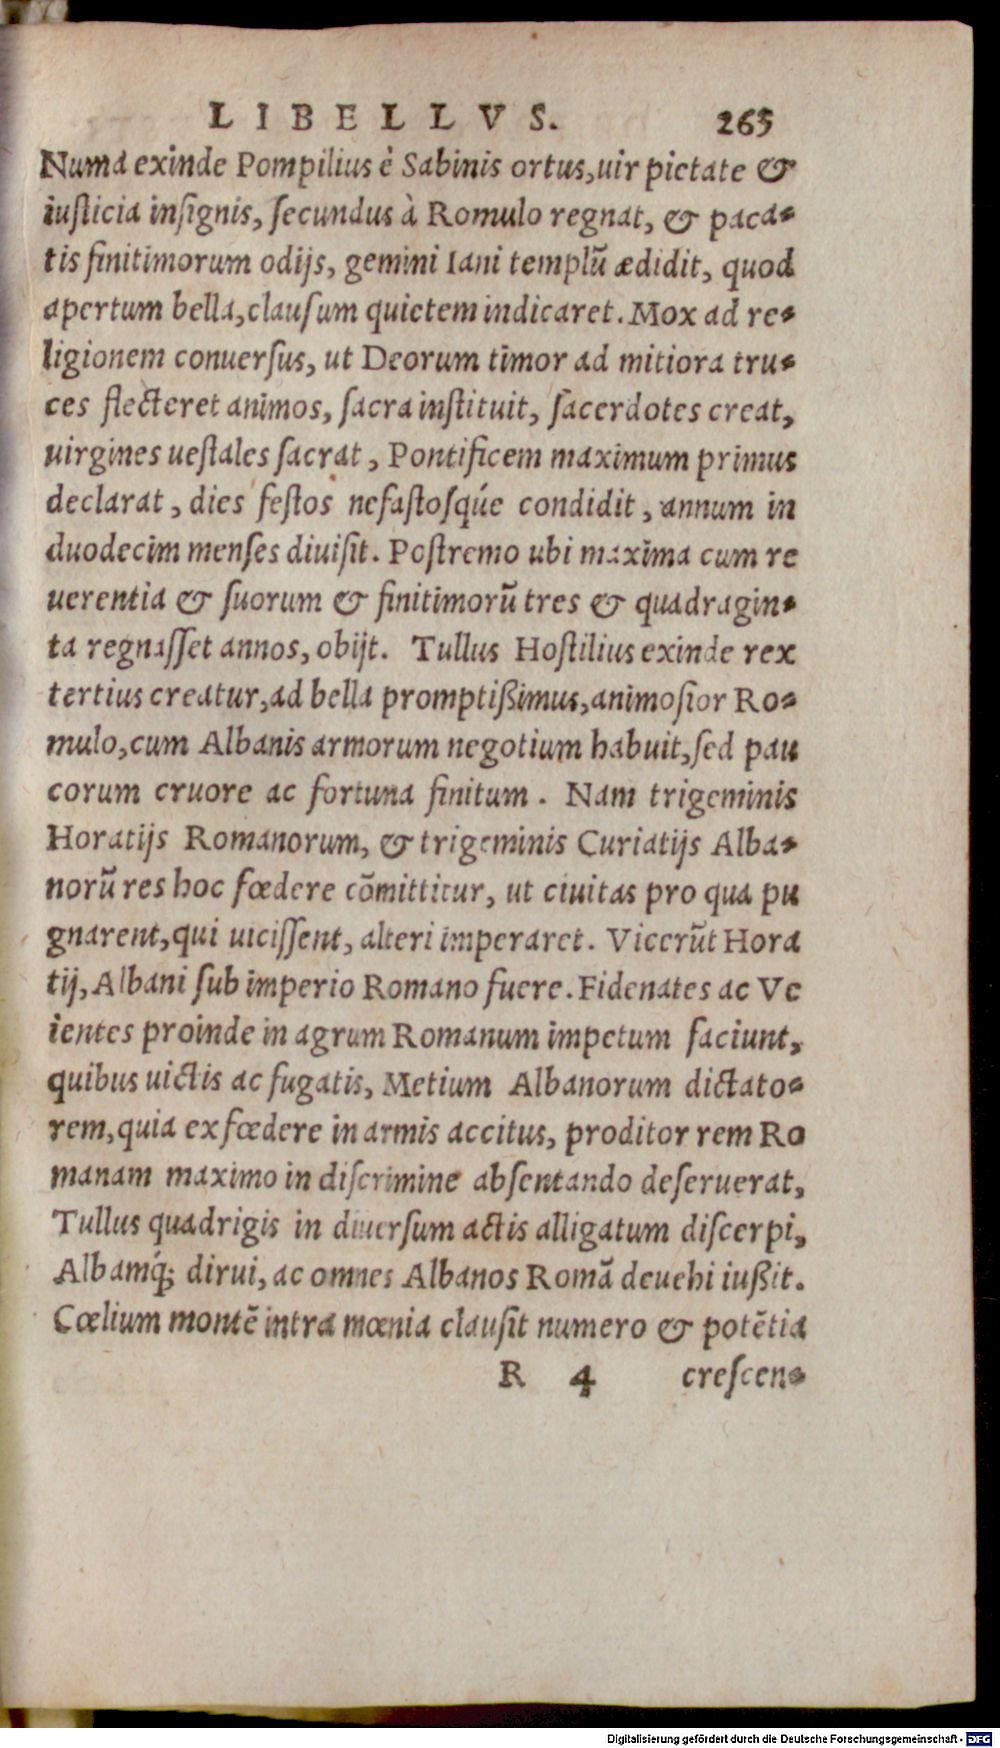 LIBELLVS. 263
Numa exinde Pompilius è Sabinis ortus, uir pietate &
iusticia insignis, secundus à Romulo regnat, & paca-
tis finitimorum odijs, gemini Iani templũ ædidit, quod
apertum bella, clausum quietem indicaret. Mox ad re-
ligionem conuersus, ut Deorum timor ad mitiora tru-
ces flecteret animos, sacra instituit, sacerdotes creat,
uirgines uestales sacrat, Pontificem maximum primus
declarat, dies festos nefastosqúe condidit, annum in
duodecim menses diuisit. Postremo ubi maxima cum re
uerentia & suorum & finitimorũ tres & quadragin-
ta regnasset annos, obijt. Tullus Hostilius exinde rex
tertius creatur, ad bella promptißimus, animosior Ro-
mulo, cum Albanis armorum negotium habuit, sed pau
corum cruore ac fortuna finitum. Nam trigeminis
Horatijs Romanorum, & trigeminis Curiatijs Alba-
norũ res hoc fœdere cõmittitur, ut ciuitas pro qua pu
gnarent, qui uicissent, alteri imperaret. Vicerũt Hora
tij, Albani sub imperio Romano fuere. Fidenates ac Ve
ientes proinde in agrum Romanum impetum faciunt,
quibus uictis ac fugatis, Metium Albanorum dictato-
rem, quia ex fœdere in armis accitus, proditor rem Ro
manam maximo in discrimine absentando deseruerat,
Tullus quadrigis in diuersum actis alligatum discerpi,
Albamq́; dirui, ac omnes Albanos Romã deuehi iußit.
Cœlium montẽ intra mœnia clausit numero & potẽtia
R 4 crescen-
Digitalisierung gefördert durch die Deutsche Forschungsgemeinschaft - DFG